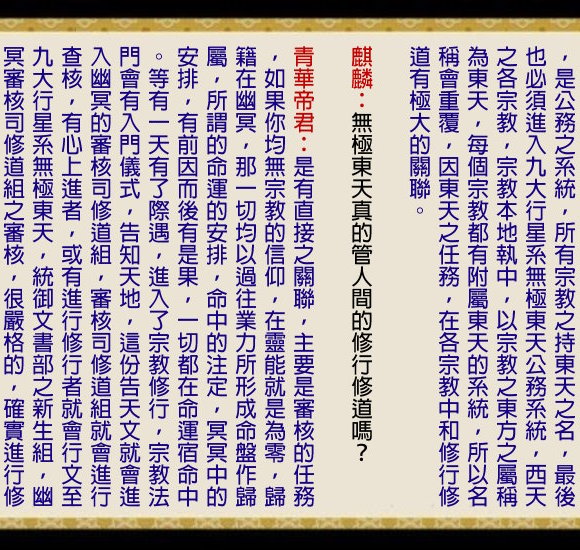 ，是公務之系統，所有宗教之持東天之名，最後
也必須進入九大行星系無極東天公務系統，西天
之各宗教，宗教本地執中，以宗教之東方之屬稱
為東天，每個宗教都有附屬東天的系統，所以名
稱會重覆，因東天之任務，在各宗教中和修行修
道有極大的關聯。
麒麟：無極東天真的管人間的修行修道嗎？
青華帝君：是有直接之關聯，主要是審核的任務
，如果你均無宗教的信仰，在靈能就是為零，歸
籍在幽冥，那一切均以過往業力所形成命盤作歸
屬，所謂的命運的安排，命中的注定，冥冥中的
安排，有前因而後有是果，一切都在命運宿命中
。等有一天有了際遇，進入了宗教修行，宗教法
門會有入門儀式，告知天地，這份告天文就會進
入幽冥的審核司修道組，審核司修道組就會進行
查核，有心上進者，或有進行修行者就會行文至
九大行星系無極東天，統御文書部之新生組，幽
冥審核司修道組之審核，很嚴格的，確實進行修